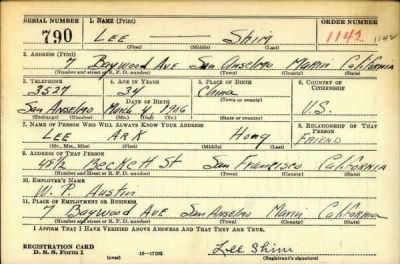 SERIAL NUMBER 1. NAME (Print) ORDER NUMBER
790 LEE — Shim 1142 1142
(First) (Middle) (Last)
2. ADDRESS (Print)
7 Baywood Ave San Anselmo Marin California
(Number and street or R. F. D. number) (Town) (County) (State)
3. TELEPHONE 4. AGE IN YEARS 5. PLACE OF BIRTH 6. COUNTRY OF CITIZENSHIP
3527 34 China
DATE OF BIRTH (Town or county)
San Anselmo March 4, 1906 U.S.
(Exchange) (Number) (Mo.) (Day) (Yr.) (State or country)
7. NAME OF PERSON WHO WILL ALWAYS KNOW YOUR ADDRESS 8. RELATIONSHIP OF THAT PERSON
LEE ARK Hong FRIEND
(Mr., Mrs., Miss) (First) (Middle) (Last)
9. ADDRESS OF THAT PERSON
Beckett St San Francisco California
(Number and street or R. F. D. number) (Town) (County) (State)
10. EMPLOYER'S NAME
W. P. Austin
11. PLACE OF EMPLOYMENT OR BUSINESS
7 Baywood Ave San Anselmo Marin California
(Number and street or R. F. D. number) (Town) (County) (State)
I AFFIRM THAT I HAVE VERIFIED ABOVE ANSWERS AND THAT THEY ARE TRUE.
REGISTRATION CARD
D. S. S. Form 1 (over) Lee Shim
(Registrant's signature)